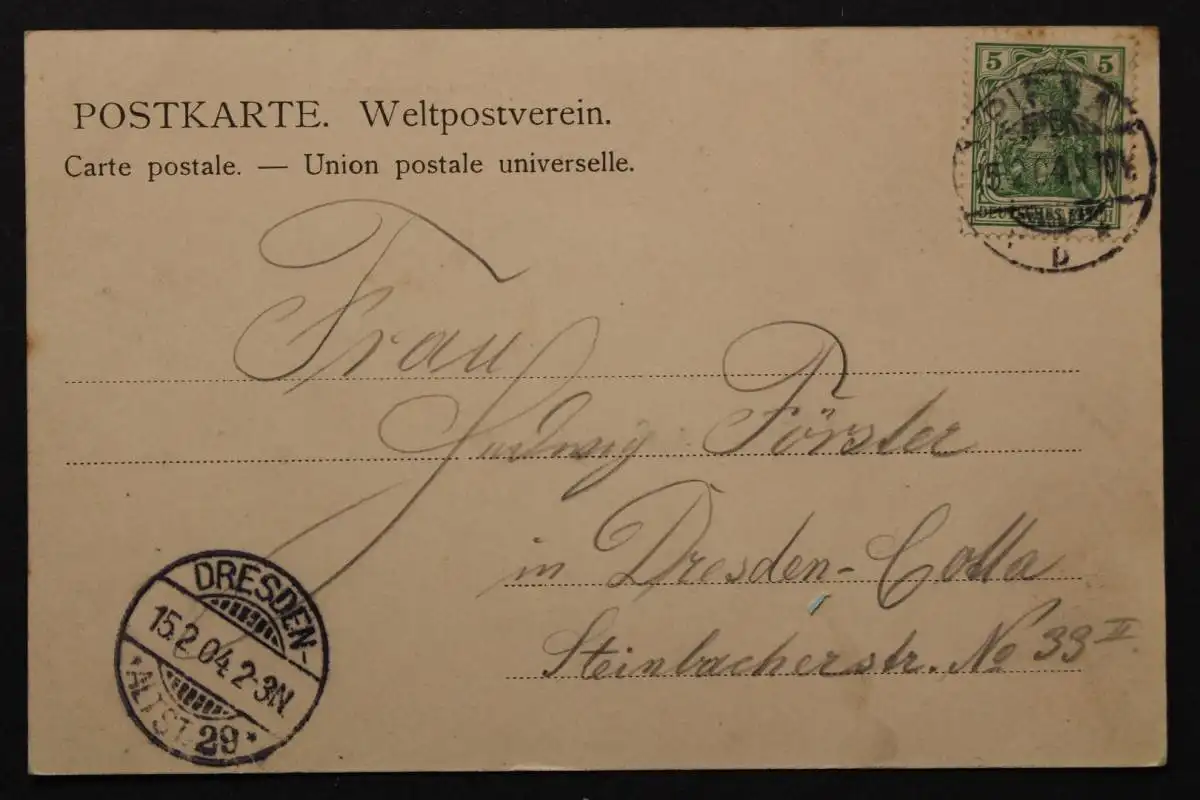 POSTKARTE. Weltpostverein.
Carte postale. — Union postale universelle.
5 5
DEUTSCHES REICH
15 2 04 10
b
Frau
Ludwig Förster
in Dresden-Cotta
Steinbacherstr. No 33 II
DRESDEN-
15.2.04.2-3N.
*ALTST. 29*